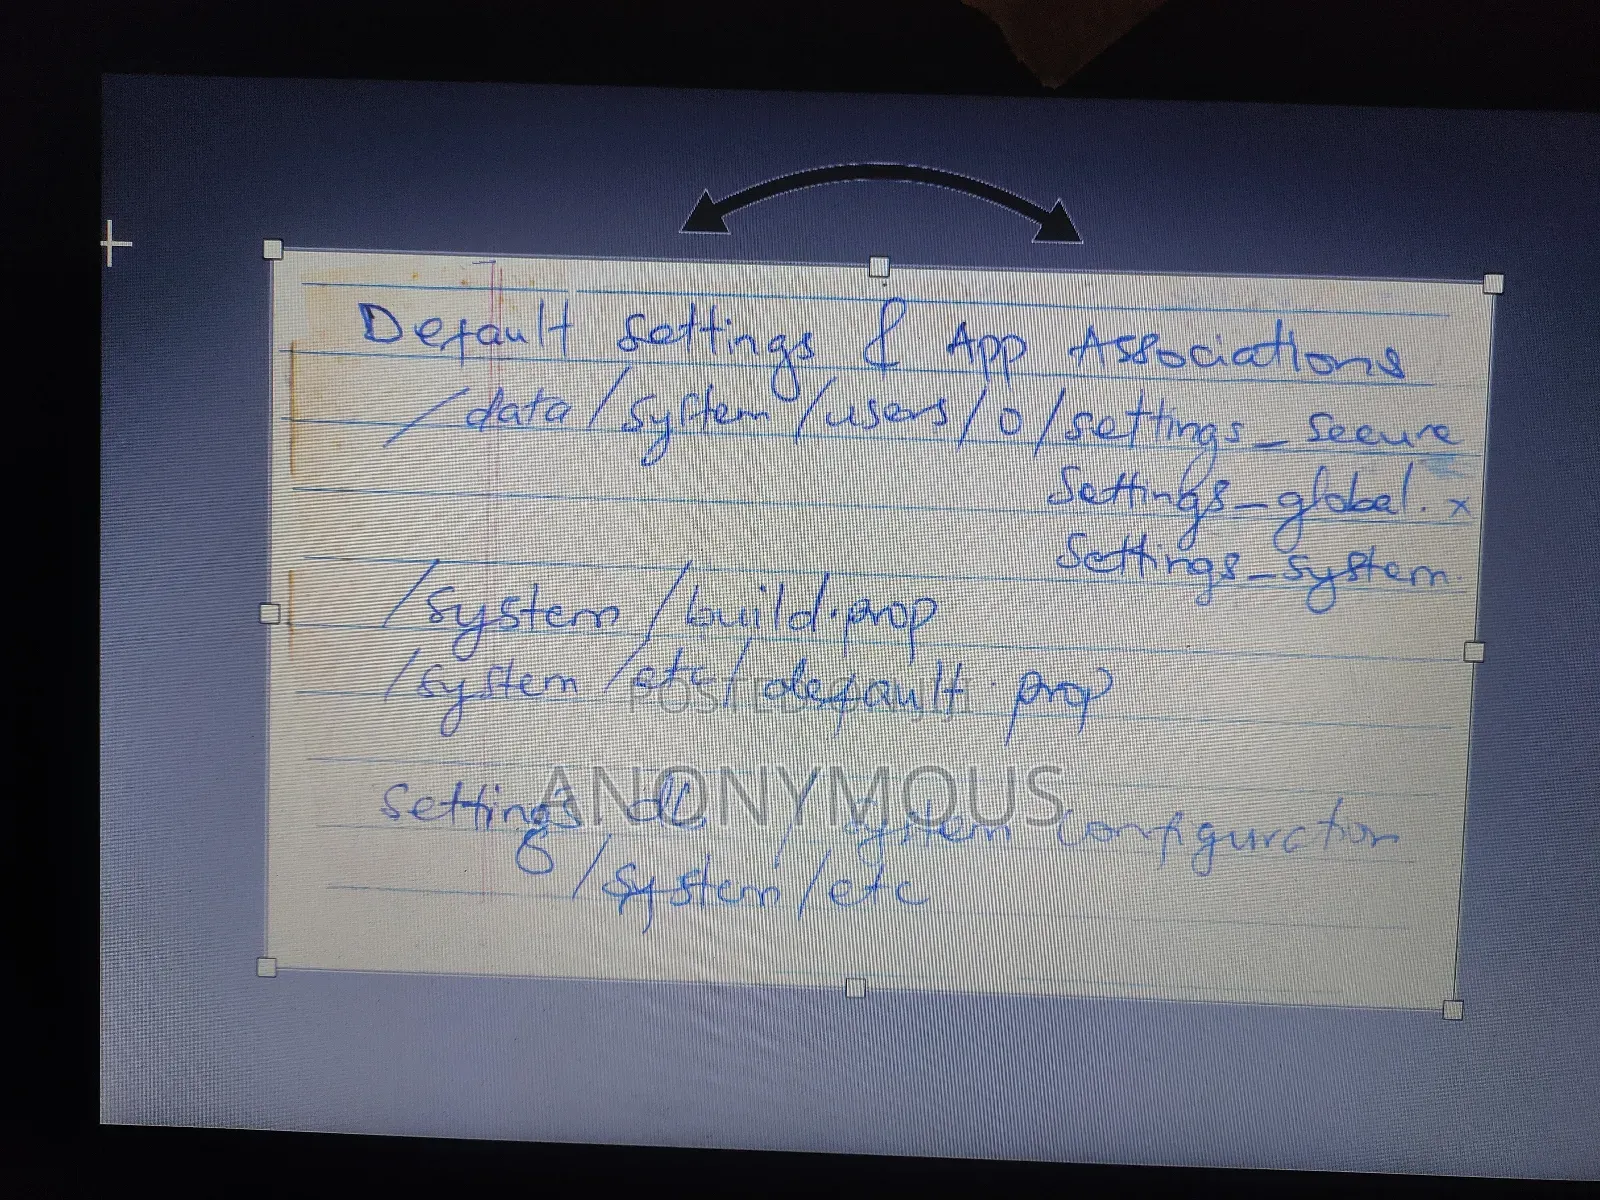 Default Settings & App Associations
/data/system/users/0/settings_secure
Settings_global.x
Settings_system.
/system/build.prop
/system/etc/default.prop
ANONYMOUS
Settings db / system configuration
/system/etc